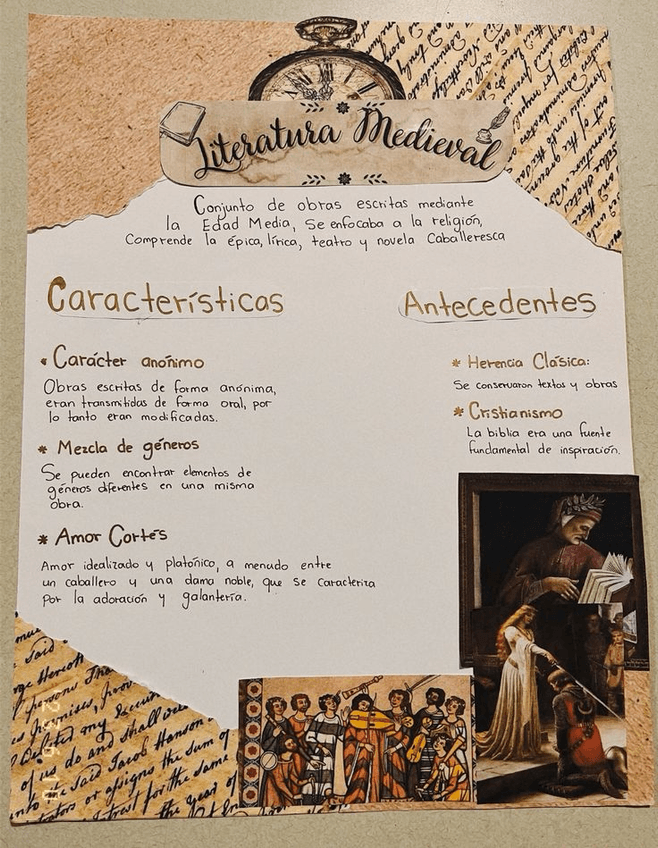 Literatura Medieval
Conjunto de obras escritas mediante
la Edad Media, Se enfocaba a la religión,
Comprende la épica, lírica, teatro y novela Caballeresca
Características
* Carácter anónimo
Obras escritas de forma anónima,
eran transmitidas de forma oral, por
lo tanto eran modificadas.
* Mezcla de géneros
Se pueden encontrar elementos de
géneros diferentes en una misma
obra.
* Amor Cortés
Amor idealizado y platónico, a menudo entre
un caballero y una dama noble, que se caracteriza
por la adoración y galantería.
Antecedentes
* Herencia Clásica:
Se conservaron textos y obras
* Cristianismo
La biblia era una fuente
fundamental de inspiración.
said
persons
my
of us do and shall
into the said Jacob Hanson
or assigns the sum of
trust for the same
the year of